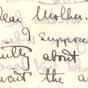 dear Mother.
I suppose
about
wait the a